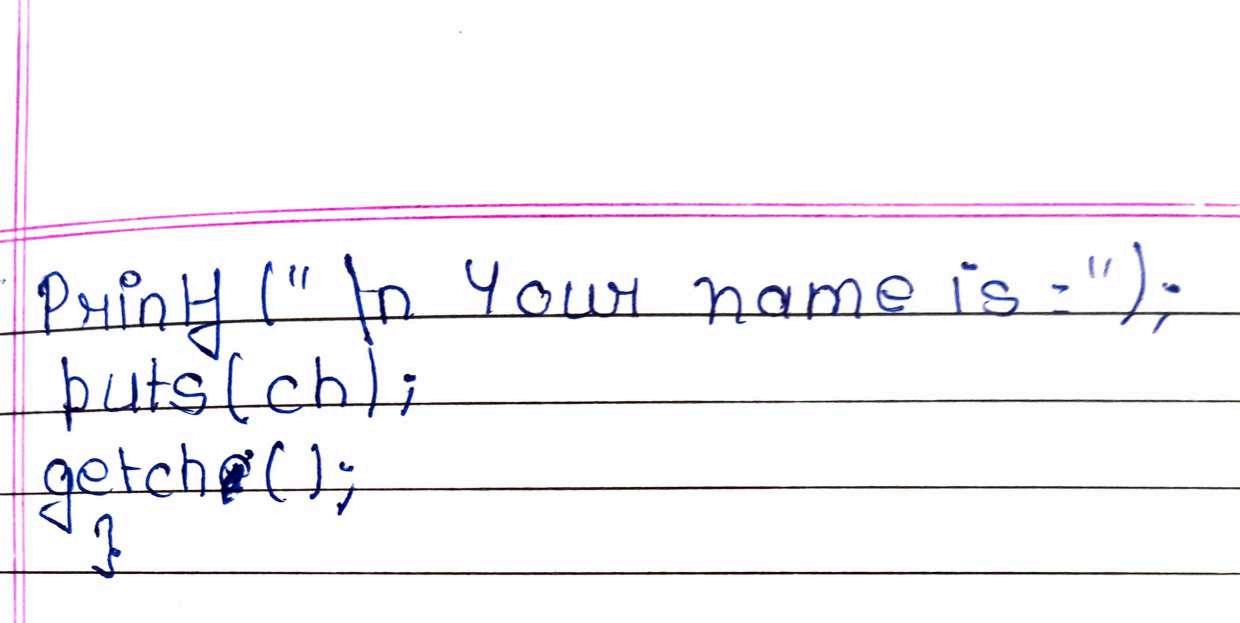 Printf ("\n Your name is :");
puts(ch);
getche();
}